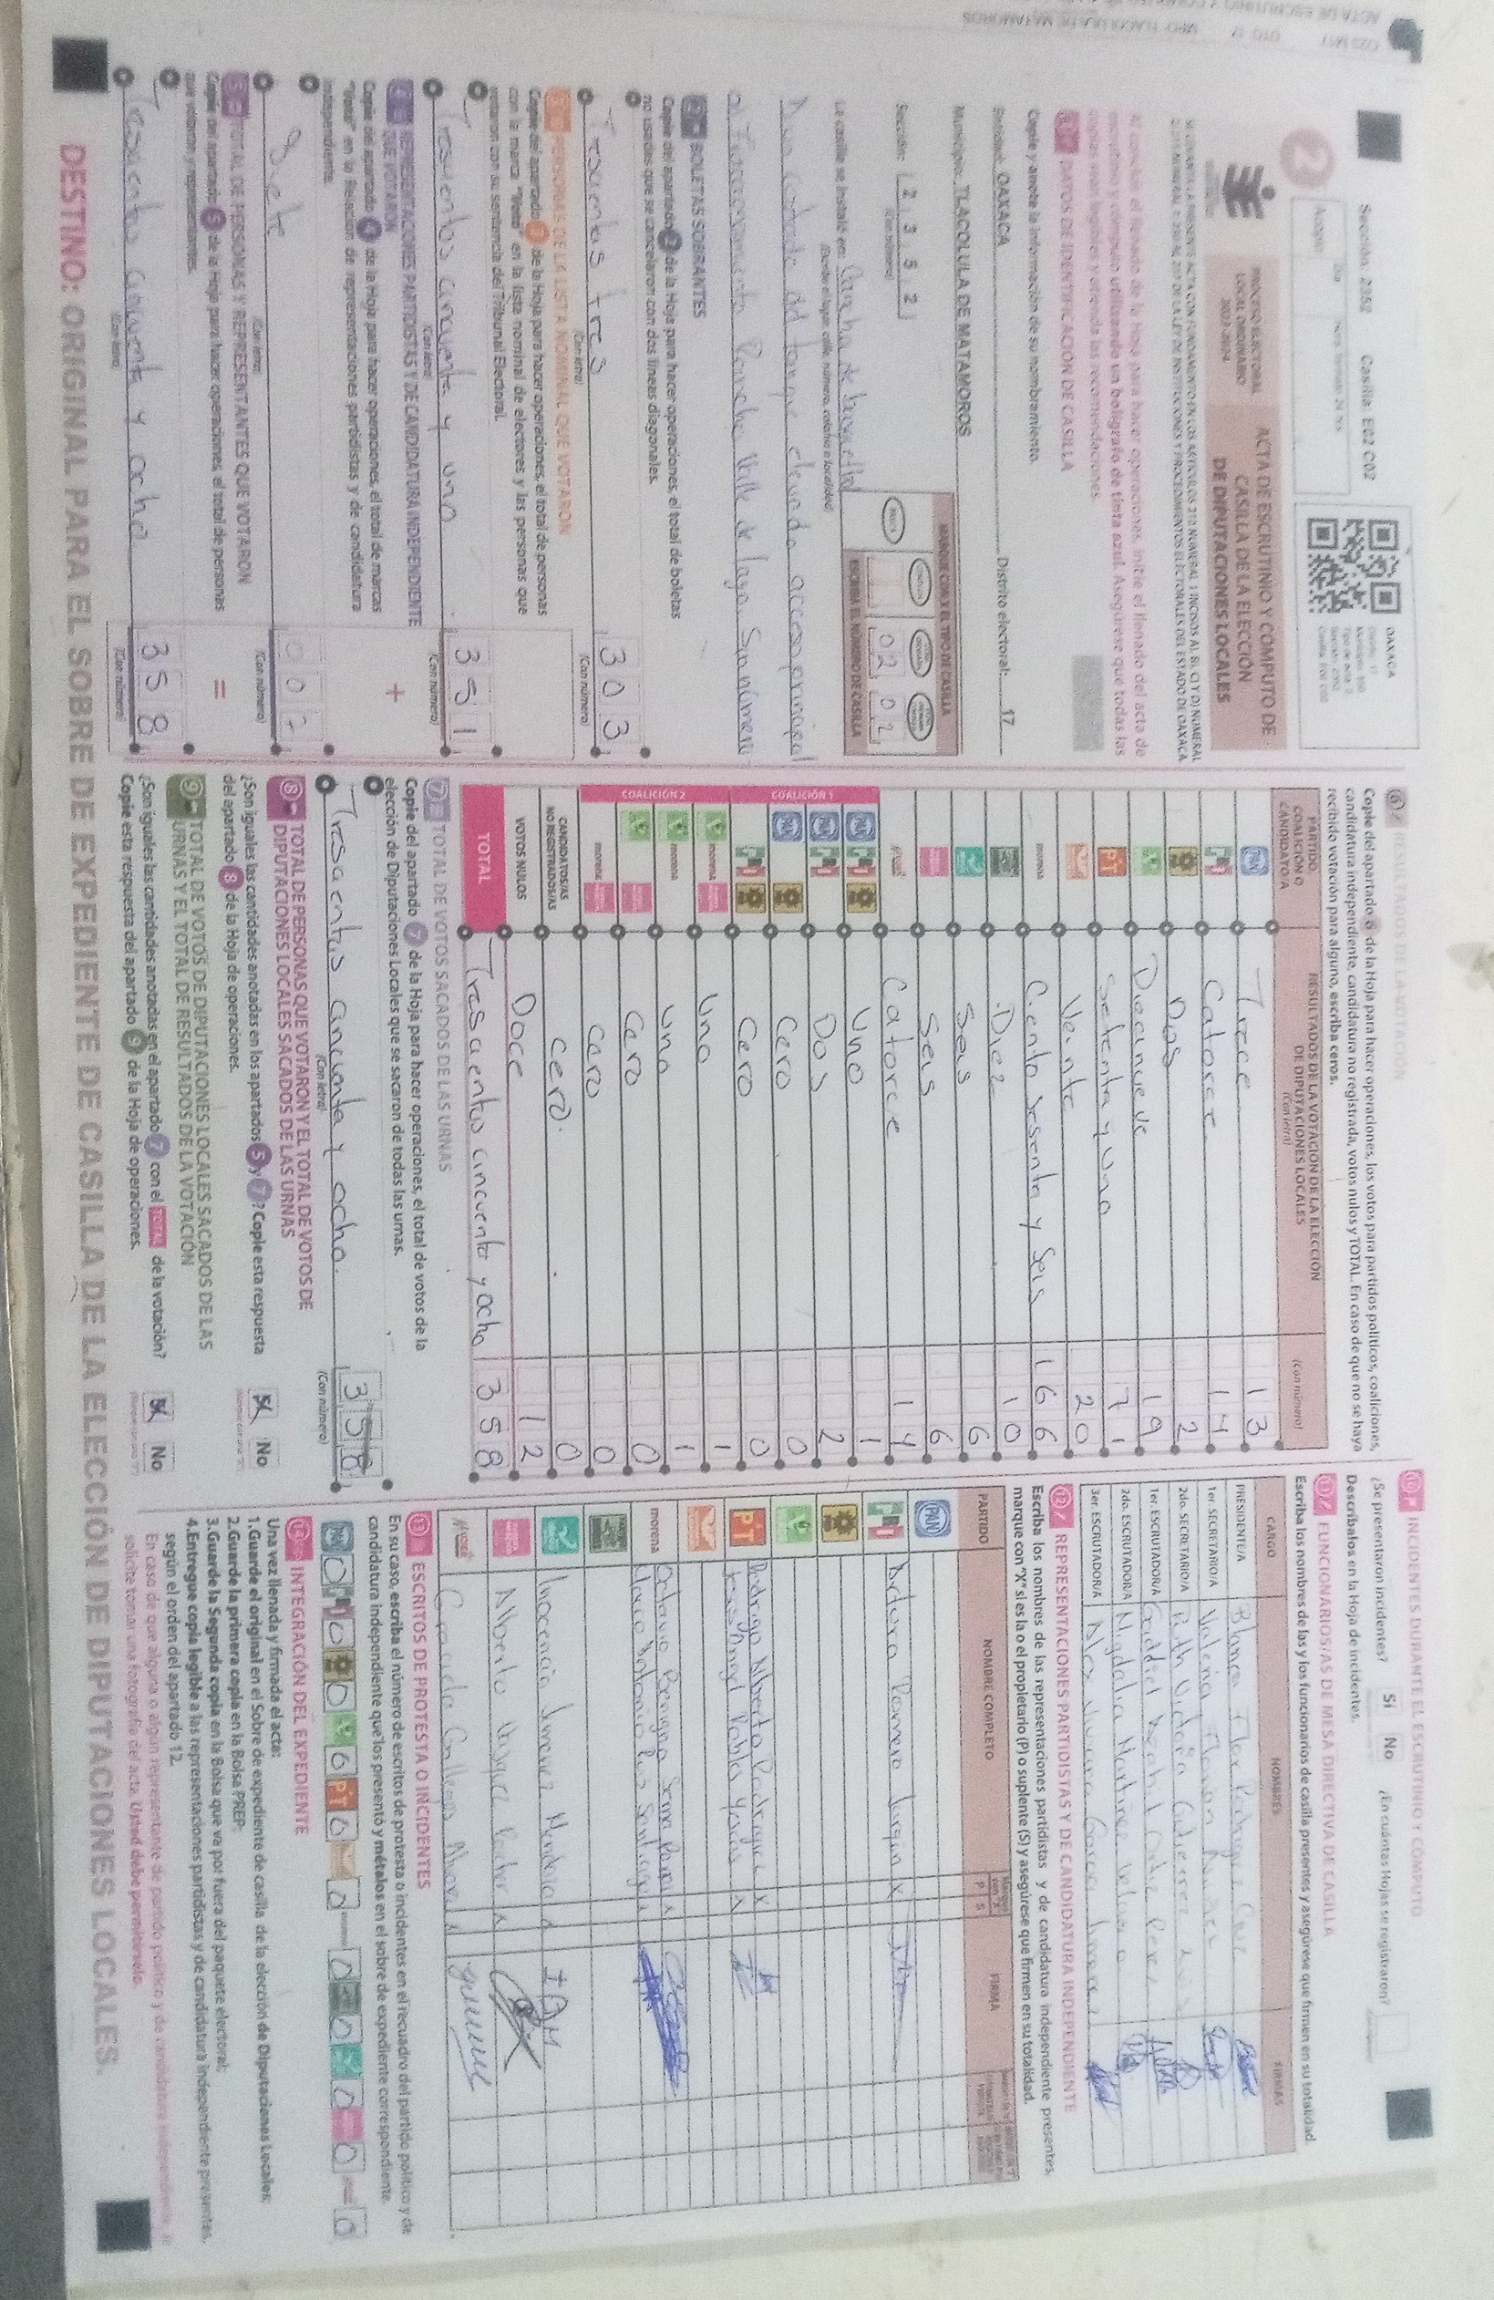 Sección: 2352 Casilla: E02 C02
OAXACA
2
PROCESO ELECTORAL
LOCAL ORDINARIO
2023-2024
ACTA DE ESCRUTINIO Y CÓMPUTO DE
CASILLA DE LA ELECCIÓN
DE DIPUTACIONES LOCALES
Al concluir el llenado de la Hoja para hacer operaciones, inicie el llenado del acta de
escrutinio y cómputo utilizando un bolígrafo de tinta azul. Asegúrese que todas las
copias sean legibles y atienda las recomendaciones.
DATOS DE IDENTIFICACIÓN DE CASILLA
Copie y anote la información de su nombramiento.
Entidad: OAXACA Distrito electoral: 17
Municipio: TLACOLULA DE MATAMOROS
Sección: 2 3 5 2
(Con número)
MARQUE CON X EL TIPO DE CASILLA
ESCRIBA EL NÚMERO DE CASILLA
02 02
La casilla se instaló en: Cancha de
(Escriba el lugar, calle, número, colonia o localidad)
acceso principal
Fraccionamiento Rancho Valle de Lago Sin número
2 BOLETAS SOBRANTES
Copie del apartado 2 de la Hoja para hacer operaciones, el total de boletas
no usadas que se cancelaron con dos líneas diagonales.
Trescientos tres 303
(Con letra) (Con número)
3 PERSONAS DE LA LISTA NOMINAL QUE VOTARON
Copie del apartado 3 de la Hoja para hacer operaciones, el total de personas
con la marca "Votó" en la lista nominal de electores y las personas que
votaron con su sentencia del Tribunal Electoral.
Trescientos cincuenta y uno 351
(Con letra) (Con número)
4 REPRESENTACIONES PARTIDISTAS Y DE CANDIDATURA INDEPENDIENTE
QUE VOTARON
+
Copie del apartado 4 de la Hoja para hacer operaciones, el total de marcas
"Votó" en la Relación de representaciones partidistas y de candidatura
independiente.
Siete 007
(Con letra) (Con número)
5 TOTAL DE PERSONAS Y REPRESENTANTES QUE VOTARON
=
Copie del apartado 5 de la Hoja para hacer operaciones, el total de personas
que votaron y representantes.
Trescientos cincuenta y ocho 358
(Con letra) (Con número)
6 RESULTADOS DE LA VOTACIÓN
Copie del apartado 6 de la Hoja para hacer operaciones, los votos para partidos políticos, coaliciones,
candidatura independiente, candidatura no registrada, votos nulos y TOTAL. En caso de que no se haya
recibido votación para alguno, escriba ceros.
PARTIDO,
COALICIÓN O
CANDIDATO/A
RESULTADOS DE LA VOTACIÓN DE LA ELECCIÓN
DE DIPUTACIONES LOCALES
(Con letra) (Con número)
PAN Trece 13
PRI Catorce 14
Dos 2
Diecinueve 19
PT Setenta y uno 71
Veinte 20
morena Ciento sesenta y seis 166
Diez 10
Seis 6
Seis 6
Catorce 14
COALICIÓN 1
Uno 1
Dos 2
Cero 0
Cero 0
COALICIÓN 2
Uno 1
Uno 1
Cero 0
Cero 0
CANDIDATOS/AS
NO REGISTRADOS/AS cero. 0
VOTOS NULOS Doce 12
TOTAL Tresciento cincuenta y ocho 358
7 TOTAL DE VOTOS SACADOS DE LAS URNAS
Copie del apartado 7 de la Hoja para hacer operaciones, el total de votos de la
elección de Diputaciones Locales que se sacaron de todas las urnas.
Trescientos cincuenta y ocho. 358
(Con letra) (Con número)
8 TOTAL DE PERSONAS QUE VOTARON Y EL TOTAL DE VOTOS DE
DIPUTACIONES LOCALES SACADOS DE LAS URNAS
¿Son iguales las cantidades anotadas en los apartados 5 y 7? Copie esta respuesta
del apartado 8 de la Hoja de operaciones.
Sí No
9 TOTAL DE VOTOS DE DIPUTACIONES LOCALES SACADOS DE LAS
URNAS Y EL TOTAL DE RESULTADOS DE LA VOTACIÓN
¿Son iguales las cantidades anotadas en el apartado 7 con el TOTAL de la votación?
Copie esta respuesta del apartado 9 de la Hoja de operaciones.
Sí No
10 INCIDENTES DURANTE EL ESCRUTINIO Y CÓMPUTO
¿Se presentaron incidentes? Sí No ¿En cuántas Hojas se registraron?
Descríbalos en la Hoja de incidentes.
11 FUNCIONARIOS/AS DE MESA DIRECTIVA DE CASILLA
Escriba los nombres de las y los funcionarios de casilla presentes y asegúrese que firmen en su totalidad.
CARGO NOMBRES FIRMAS
PRESIDENTE/A Blanca Flor Rodríguez Cruz
1er. SECRETARIO/A Valeria
2do. SECRETARIO/A Ruth Victoria Gutierrez
1er. ESCRUTADOR/A
2do. ESCRUTADOR/A Migdalia Martinez
3er. ESCRUTADOR/A Alex Garcia
12 REPRESENTACIONES PARTIDISTAS Y DE CANDIDATURA INDEPENDIENTE
Escriba los nombres de las representaciones partidistas y de candidatura independiente presentes,
marque con "X" si es la o el propietario (P) o suplente (S) y asegúrese que firmen en su totalidad.
PARTIDO NOMBRE COMPLETO P S FIRMA
PAN
PRI Arturo Romero
PT Rodrigo Alberto Rodriguez X
Angel Robles
morena Octavio
Antonio Santiago
Inocencio Jimenez Mendoza
Alberto Vasquez
13 ESCRITOS DE PROTESTA O INCIDENTES
En su caso, escriba el número de escritos de protesta o incidentes en el recuadro del partido político y de
candidatura independiente que los presentó y métalos en el sobre de expediente correspondiente.
0 0 0 0 0 0 0 0 0 0 0
14 INTEGRACIÓN DEL EXPEDIENTE
Una vez llenada y firmada el acta:
1.Guarde el original en el Sobre de expediente de casilla de la elección de Diputaciones Locales;
2.Guarde la primera copia en la Bolsa PREP;
3.Guarde la Segunda copia en la Bolsa que va por fuera del paquete electoral;
4.Entregue copia legible a las representaciones partidistas y de candidatura independiente presentes,
según el orden del apartado 12.
En caso de que alguna o algún representante de partido político y de candidatura independiente, le
solicite tomar una fotografía del acta, Usted debe permitírselo.
DESTINO: ORIGINAL PARA EL SOBRE DE EXPEDIENTE DE CASILLA DE LA ELECCIÓN DE DIPUTACIONES LOCALES.